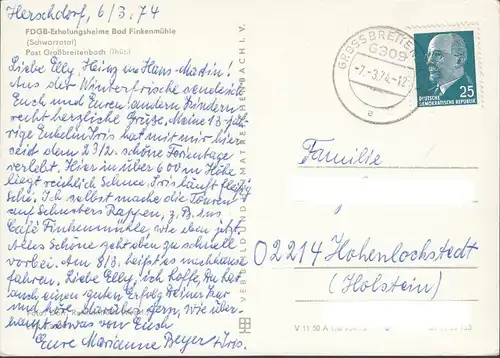 Herschdorf, 6/3.74
FDGB-Erholungsheime Bad Finkenmühle
(Schwarzatal)
Post Großbreitenbach (Thür.)
Liebe Elly, Heinz u. Hans-Martin!
Aus der Winterfrische sende ich
Euch und Euren andern Kindern
recht herzliche Grüße. Meine 13-jäh-
rige Enkelin Iris hat mit mir hier
seid dem 23/2. schöne Ferientage
verlebt. Hier in über 600 m Höhe
liegt reichlich Schnee. Iris läuft fleißig
Schi. Ich selbst mache die Touren
auf Schusters Rappen, z.B. ins
Café Finkenmühle, wie eben jetzt.
Alles Schöne geht eben zu schnell
vorbei. Am 8/3. heißt es nachhause
fahren. Liebe Elly, ich hoffe, Du hat-
auch einen guten Erfolg Deiner Kur
und
gern, wie über-
haupt etwas von Euch
Eure Marianne Beyer u. Iris.
VEB BILD UND HEIMAT REICHENBACH I. V.
GROSSBREITEN
6309
-7.-3.74.-12
e
25
DEUTSCHE
DEMOKRATISCHE REPUBLIK
Familie
02214 Hohenlockstedt
(Holstein)
V 11 50 A